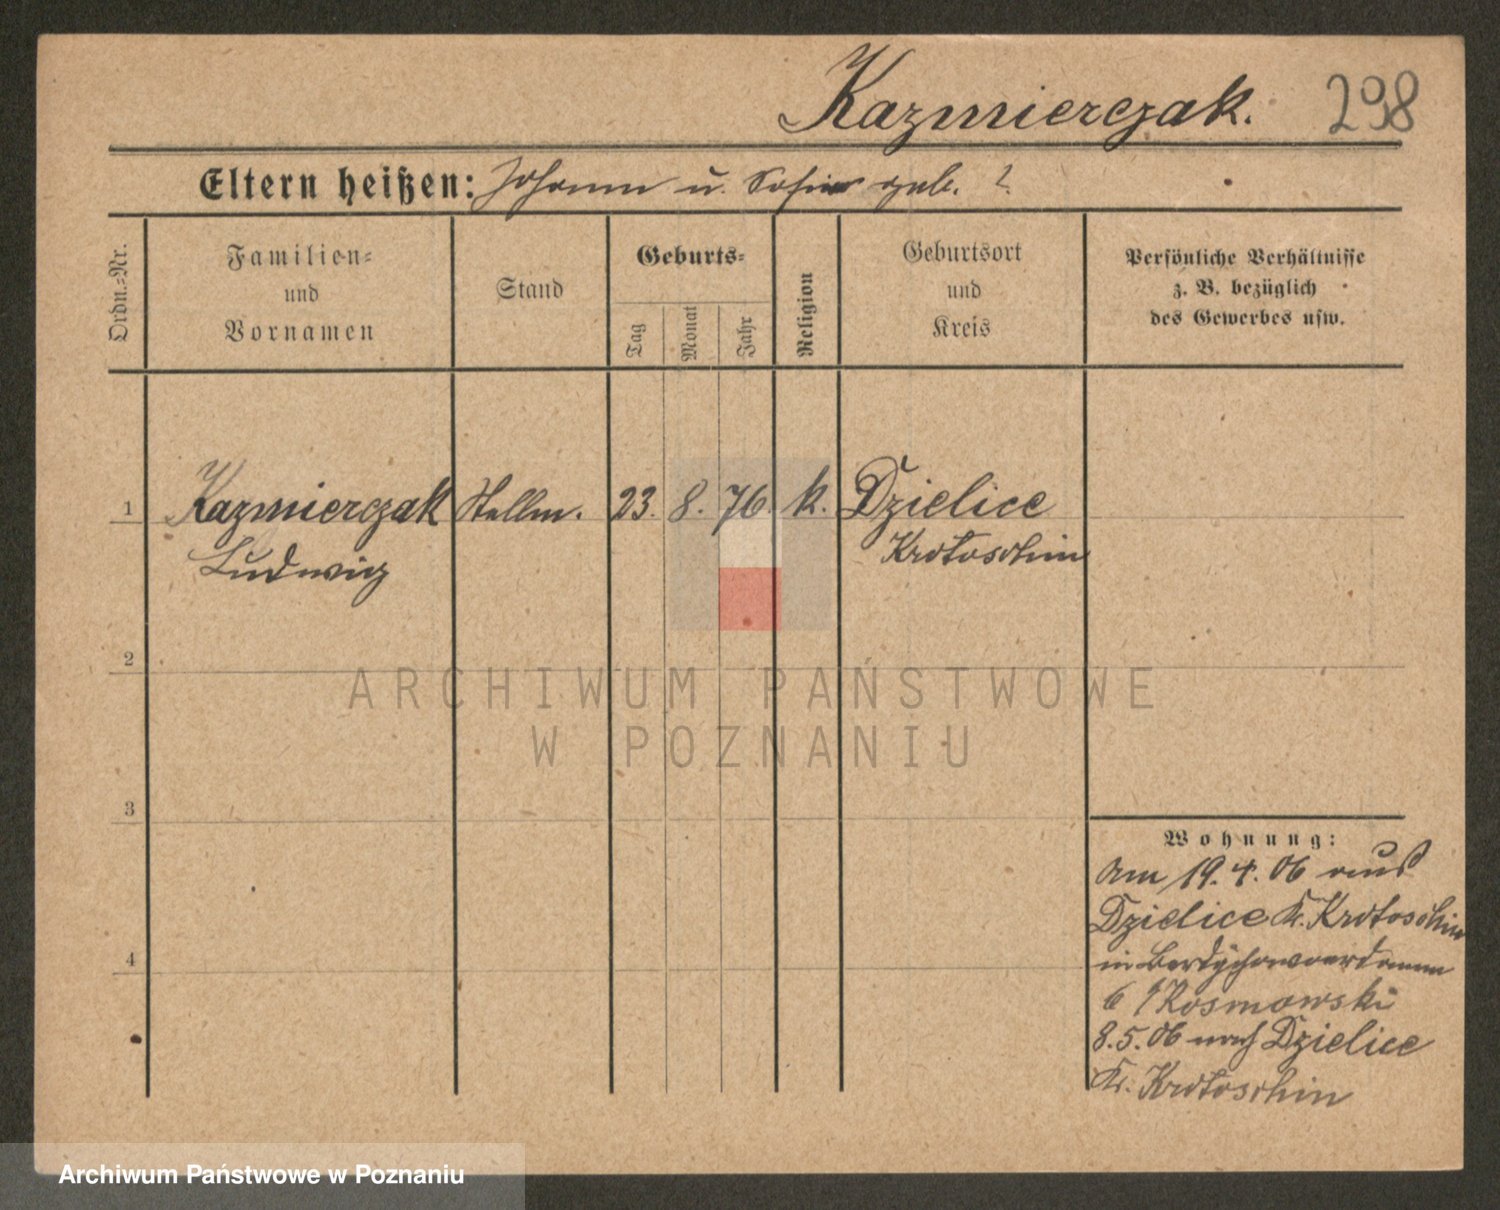 Kazmierczak. 298
Eltern heißen: Johann u. Sofie geb. ?
Ordn.=Nr.
Familien=
und
Vornamen
Stand
Geburts=
Tag
Monat
Jahr
Religion
Geburtsort
und
Kreis
Persönliche Verhältnisse
z. B. bezüglich
des Gewerbes usw.
1 Kazmierczak Stellm. 23. 8. 76. k. Dzielice
Ludwig Krotoschin
2
3
4
Wohnung:
Am 19.4.06 aus
Dzielice Kr. Krotoschin
in Berdychowoerdamm
6 Rosmowski
8.5.06 nach Dzielice
Kr. Krotoschin
ARCHIWUM PAŃSTWOWE
W POZNANIU
Archiwum Państwowe w Poznaniu